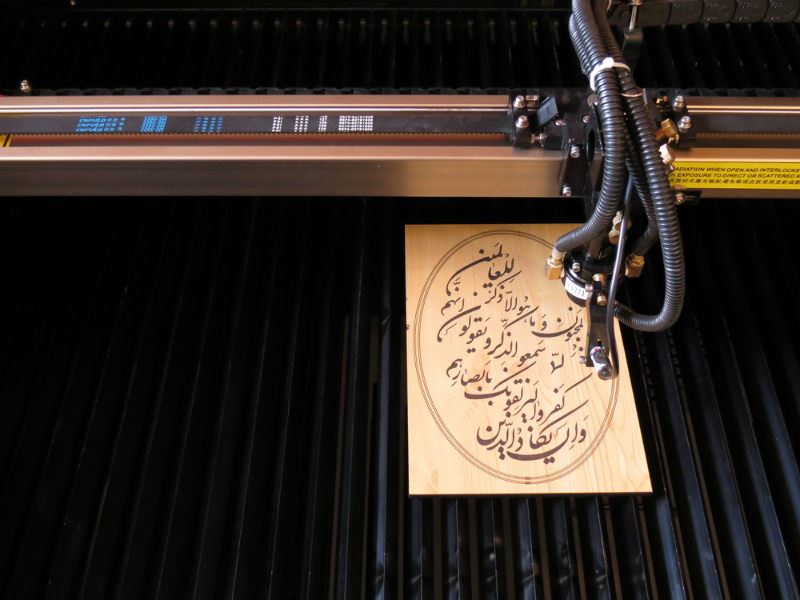 RADIATION WHEN OPEN AND INTERLOCKS
EXPOSURE TO DIRECT OR SCATTERED
وَاِن یَکادُ الَّذین
کَفَروا لَیُزلِقونَکَ بِاَبصارِهِم
سَمِعُو الذِّکرَ وَ یَقولونَ اِنَّهُ
لَمَجنون وَ ما هُوَ اِلّا ذِکرٌ
لِلعالَمین